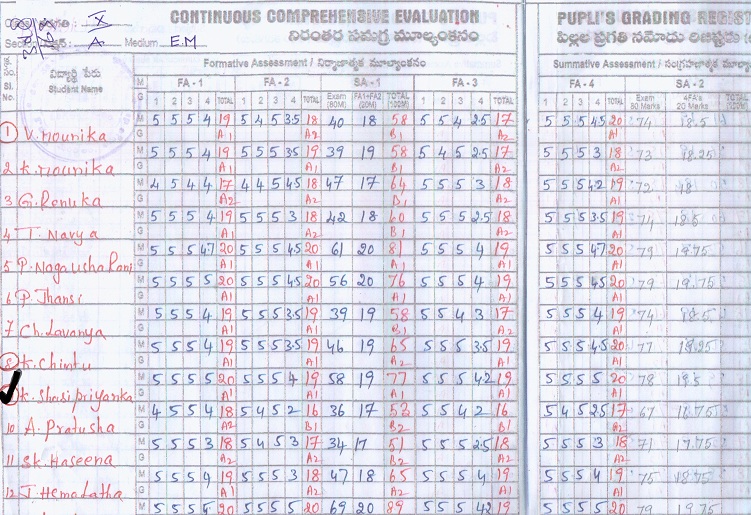 CONTINUOUS COMPREHENSIVE EVALUATION PUPLI'S GRADING REGIS
నిరంతర సమగ్ర మూల్యాంకనం పిల్లల ప్రగతి నమోదు రిజిష్టరు
X
A Medium E.M
Formative Assessment / నిర్మాణాత్మక మూల్యాంకనం Summative Assessment / సంగ్రహణాత్మక మూల్యాం
Sl. No. విద్యార్థి పేరు Student Name M FA - 1 FA - 2 SA - 1 FA - 3 FA - 4 SA - 2
G 1 2 3 4 TOTAL 1 2 3 4 TOTAL Exam (80M) FA1+FA2 (20M) TOTAL (100M) 1 2 3 4 TOTAL 1 2 3 4 TOTAL Exam 80 Marks 4FA's 20 Marks TOTAL
M 5 5 5 4 19 5 4 5 3.5 18 40 18 58 5 5 4 2.5 17 5 5 5 4.5 20 74 18.5
1 V. Mounika G A1 A2 B1 A2 A1
M 5 5 5 4 19 5 5 5 3.5 19 39 19 58 5 4 5 2.5 17 5 5 5 3 18 73 18.25
2 K. Mounika G A1 A1 B1 A2 A1
M 4 5 4 4 17 4 4 5 4.5 18 47 17 64 5 5 5 3 18 5 5 5 4.2 19 72 18
3 G. Renuka G A2 A2 B1 A2 A1
M 5 5 5 4 19 5 5 5 3 18 42 18 60 5 5 5 2.5 18 5 5 5 3.5 19 74 18.5
4 T. Navya G A1 A2 B1 A2 A1
M 5 5 5 4.7 20 5 5 5 4.5 20 61 20 81 5 5 5 4 19 5 5 5 4.7 20 79 19.75
5 P. Naga usha Rani G A1 A1 A1 A1 A1
M 5 5 5 5 20 5 5 5 4.5 20 56 20 76 5 5 5 4 19 5 5 5 4.5 20 79 19.75
6 P. Jhansi G A1 A1 A2 A1 A1
M 5 5 5 4 19 5 5 5 3.5 19 39 19 58 5 5 4 3 17 5 5 5 4 19 74 18.5
7 Ch. Lavanya G A1 A1 B1 A2 A1
M 5 5 5 4 19 5 5 5 3.5 19 46 19 65 5 5 5 3.5 19 5 5 5 4.5 20 77 19.25
8 K. Chintu G A1 A1 A2 A1 A1
M 5 5 5 5 20 5 5 5 4 19 58 19 77 5 5 5 4.2 19 5 5 5 5 20 78 19.5
K. Shasi priyanka G A1 A1 A2 A1 A1
M 4 5 5 4 18 5 4 5 2 16 36 17 53 5 5 4 2 16 5 4 5 2.5 17 67 16.75
10 A. Pratusha G A2 A2 B2 A2 A2
M 5 5 5 3 18 5 4 5 3 17 34 17 51 5 5 5 2.5 18 5 5 5 3 18 71 17.75
11 Sk. Haseena G A2 A2 B1 A2 A2
M 5 5 5 4 19 5 5 5 3 18 47 18 65 5 5 5 4 19 5 5 5 4 19 75 18.75
12 J. Hemalatha G A1 A2 A2 A1 A1
M 5 5 5 20 5 5 5 5 20 69 20 89 5 5 5 4.2 19 5 5 5 5 20 79 19.75